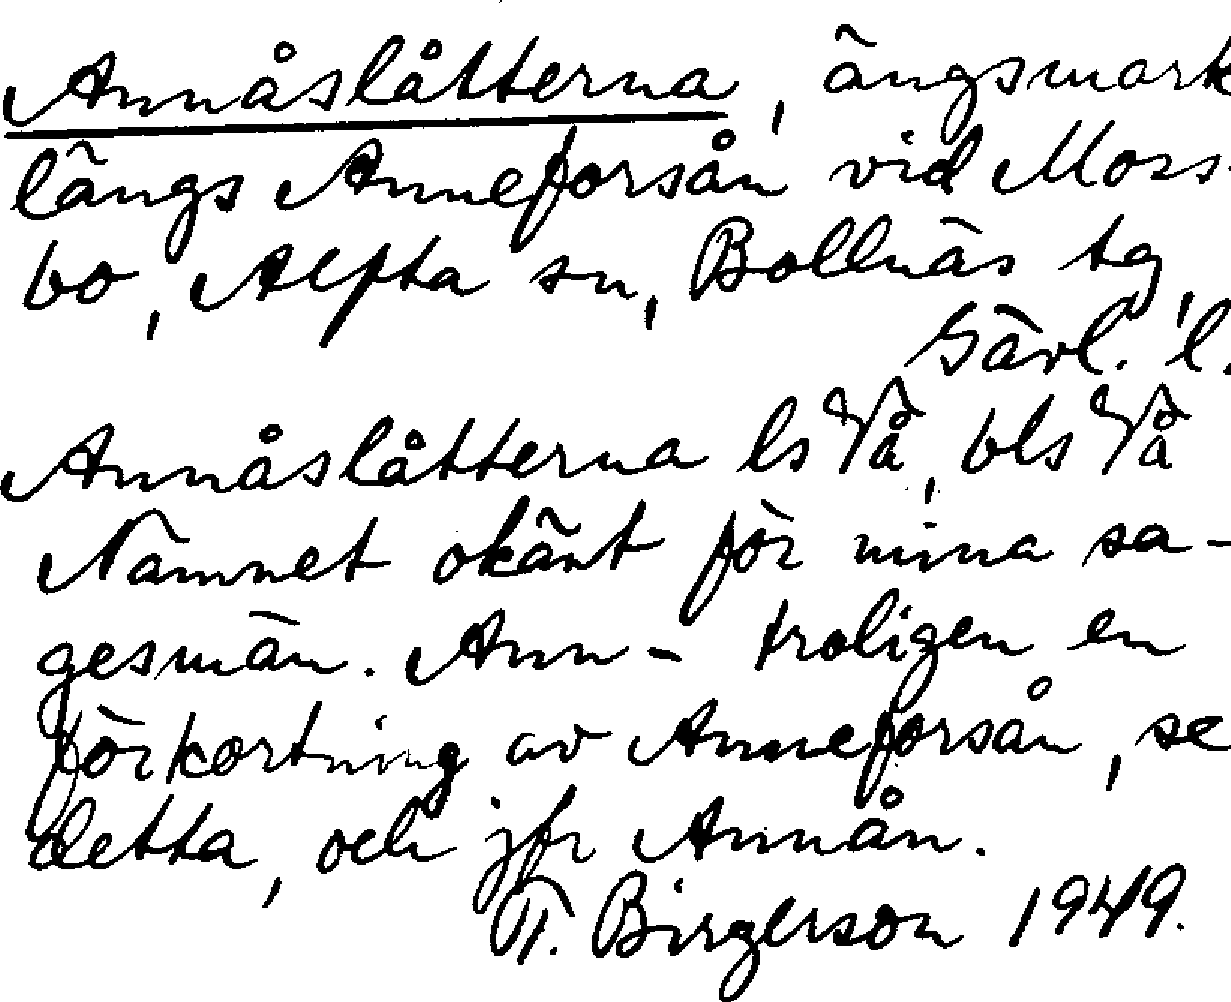 Annåslåtterna, ängsmark
längs Anneforsån vid Moss-
bo, Alfta sn, Bollnäs tg,
Gävl. l.
Annåslåtterna ls Vå, bls Vå
Namnet okänt för mina sa-
gesmän. Ann- troligen en
förkortning av Anneforsån, se
detta, och jfr Annån.
T. Birgerson 1949.